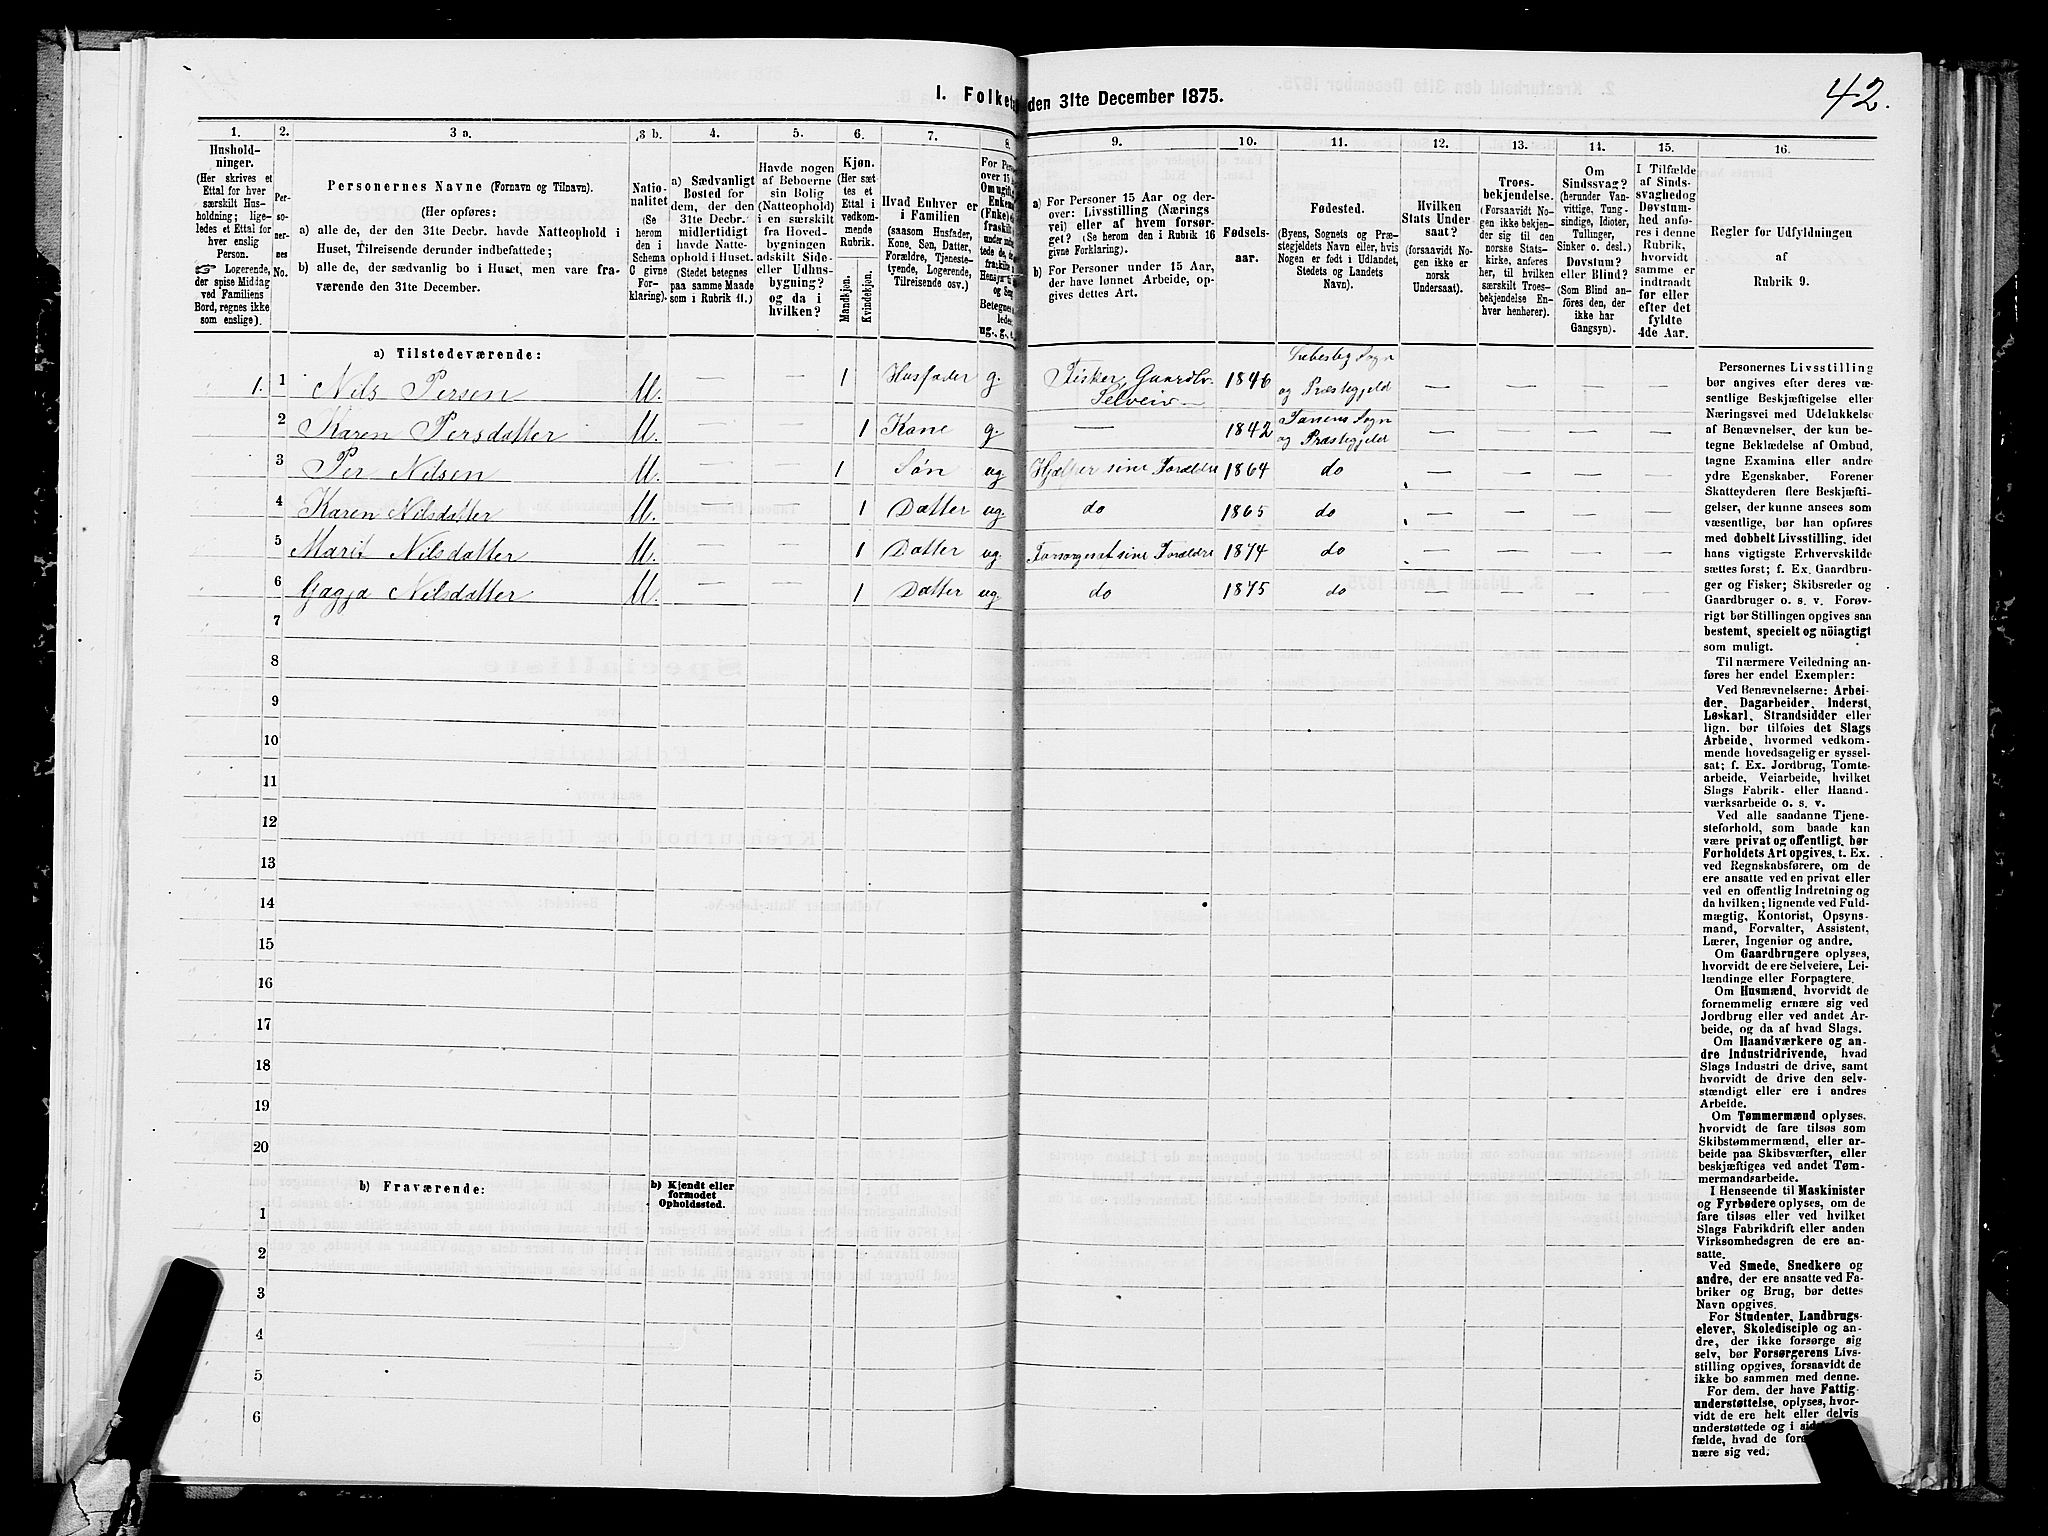 I. Folketæ
den 31te December 1875.
42.
1.
Hushold-
ninger.
(Her skrives et
Ettal for hver
særskilt Hus-
holdning; lige-
ledes et Ettal for
hver enslig
Person.
☞ Logerende,
der spise Middag
ved Familiens
Bord, regnes ikke
som enslige).
2.
Per-
so-
ner-
nes
No.
3 a.
Personernes Navne (Fornavn og Tilnavn).
(Her opføres:
a) alle de, der den 31te Decbr. havde Natteophold i
Huset, Tilreisende derunder indbefattede;
b) alle de, der sædvanlig bo i Huset, men vare fra-
værende den 31te December.
3 b.
Natio-
nalitet
(Se
herom
den i
Schema
C givne
For-
klaring).
4.
a) Sædvanligt
Bosted for
dem, der den
31te Decbr.
midlertidigt
havde Natte-
ophold i Huset.
(Stedet betegnes
paa samme Maade
som i Rubrik 11.)
5.
Havde nogen
af Beboerne
sin Bolig
(Natteophold)
i en særskilt
fra Hoved-
bygningen
adskilt Side-
eller Udhus-
bygning?
og da i
hvilken?
6.
Kjøn.
(Her sæt-
tes et
Ettal i
vedkom-
mende
Rubrik.
Mandkjøn.
Kvindekjøn.
7.
Hvad Enhver er
i Familien
(saasom Husfader,
Kone, Søn, Datter,
Forældre, Tjeneste-
tyende, Logerende,
Tilreisende osv.)
8.
9.
a) For Personer 15 Aar og der-
over: Livsstilling (Nærings
vei) eller af hvem forsør-
get? (Se herom den i Rubrik 16
givne Forklaring).
b) For Personer under 15 Aar,
der have lønnet Arbeide, op-
gives dettes Art.
10.
Fødsels-
aar.
11.
Fødested.
(Byens, Sognets og Præ-
stegjeldets Navn eller, hvis
Nogen er født i Udlandet,
Stedets og Landets
Navn).
12.
Hvilken
Stats Under
saat?
(forsaavidt No-
gen ikke er
norsk
Undersaat).
13.
Troes-
bekjendelse.
(Forsaavidt No-
gen ikke bekjen-
der sig til den
norske Stats-
kirke, anføres
her, til hvilken
særskilt Troes-
bekjendelse En-
hver henhører).
14.
Om
Sindssvag?
(herunder Van-
vittige, Tung-
sindige, Idioter,
Tullinger,
Sinker o. desl.)
Døvstum?
eller Blind?
(Som Blind an-
føres den, der
ikke har
Gangsyn).
15.
I Tilfælde
af Sinds-
svaghed og
Døvstum-
hed anfø-
res i denne
Rubrik,
hvorvidt
samme er
indtraadt
før eller
efter det
fyldte
4de Aar.
16.
Regler for Udfyldningen
af
Rubrik 9.
a) Tilstedeværende:
1. 1 Nils Persen M. — — 1 Husfader g. Fisker, Gaardbr. Selveier 1846 Sogn og Præstegjeld — — — —
2 Karen Persdatter M. — — 1 Kone g. — 1842 Tanens Sogn og Præstegjeld — — — —
3 Per Nilsen M. — — 1 Søn ug. Hjælper sine Forældre 1864 do — — — —
4 Karen Nilsdatter M. — — 1 Datter ug. do 1865 do — — — —
5 Marit Nilsdatter M. — — 1 Datter ug. Forsørget sine Forældre 1874 do — — — —
6 Gagja Nilsdatter M. — — 1 Datter ug. do 1875 do — — — —
7
8
9
10
11
12
13
14
15
16
17
18
19
20
b) Fraværende:
b) Kjendt eller
formodet
Opholdssted.
1
2
3
4
5
6
Personernes Livsstilling
bør angives efter deres væ-
sentlige Beskjæftigelse eller
Næringsvei med Udelukkelse
af Benævnelser, der kun be-
tegne Beklædelse af Ombud,
tagne Examina eller andre
ydre Egenskaber. Forener
Skatteyderen flere Beskjæfti-
gelser, der kunne ansees som
væsentlige, bør han opføres
med dobbelt Livsstilling, idet
hans vigtigste Erhvervskilde
sættes først; f. Ex. Gaardbru-
ger og Fisker; Skibsreder og
Gaardbruger o. s. v. Forøv-
rigt bør Stillingen opgives saa
bestemt, specielt og nöiagtigt
som muligt.
Til nærmere Veiledning an-
føres her endel Exempler:
Ved Benævnelserne: Arbei-
der, Dagarbeider, Inderst,
Løskarl, Strandsidder eller
lign. bør tilføies det Slags
Arbeide, hvormed vedkom-
mende hovedsagelig er syssel-
sat; f. Ex. Jordbrug, Tomte-
arbeide, Veiarbeide, hvilket
Slags Fabrik- eller Haand-
værksarbeide o. s. v.
Ved alle saadanne Tjene-
steforhold, som baade kan
være privat og offentligt, bør
Forholdets Art opgives, t. Ex.
ved Regnskabsførere, om de
ere ansatte ved en privat eller
ved en offentlig Indretning og
da hvilken; lignende ved Fuld-
mægtig, Kontorist, Opsyns-
mand, Forvalter, Assistent,
Lærer, Ingeniør og andre.
Om Gaardbrugere oplyses,
hvorvidt de ere Selveiere, Lei-
lændinge eller Forpagtere.
Om Husmænd, hvorvidt de
fornemmelig ernære sig ved
Jordbrug eller ved andet Ar-
beide, og da af hvad Slags.
Om Haandværkere og an-
dre Industridrivende, hvad
Slags Industri de drive, samt
hvorvidt de drive den selv-
stændigt eller ere i andres
Arbeide.
Om Tømmermænd oplyses,
hvorvidt de fare tilsøs som
Skibstømmermænd, eller ar-
beide paa Skibsværfter, eller
beskjæftiges ved andet Tøm-
mermandsarbeide.
I Henseende til Maskinister
og Fyrbødere oplyses, om de
fare tilsøs eller ved hvilket
Slags Fabrikdrift eller anden
Virksomhedsgren de ere an-
satte.
Ved Smede, Snedkere og
andre, der ere ansatte ved Fa-
briker og Brug, bør dettes
Navn opgives.
For Studenter, Landbrugs-
elever, Skoledisciple og an-
dre, der ikke forsørge sig
selv, bør Forsørgerens Livs-
stilling opgives, forsaavidt de
ikke bo sammen med denne.
For dem, der have Fattig-
understøttelse, oplyses, hvor-
vidt de ere helt eller delvis
understøttede og i
fælde, hvad de
nære sig ved.